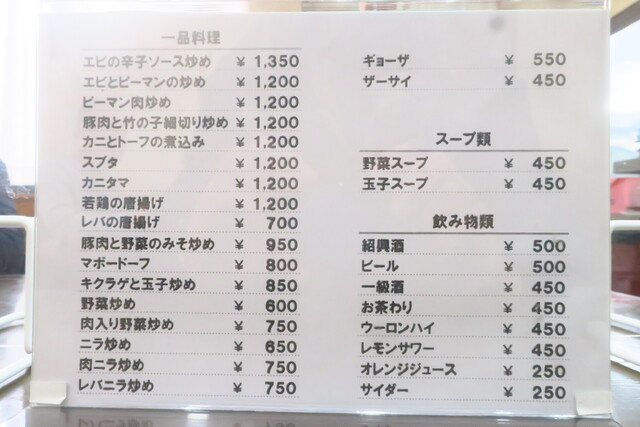 一品料理
エビの辛子ソース炒め ¥ 1,350
エビとピーマンの炒め ¥ 1,200
ピーマン肉炒め ¥ 1,200
豚肉と竹の子細切り炒め ¥ 1,200
カニとトーフの煮込み ¥ 1,200
スブタ ¥ 1,200
カニタマ ¥ 1,200
若鶏の唐揚げ ¥ 1,200
レバの唐揚げ ¥ 700
豚肉と野菜のみそ炒め ¥ 950
マボードーフ ¥ 800
キクラゲと玉子炒め ¥ 850
野菜炒め ¥ 600
肉入り野菜炒め ¥ 750
ニラ炒め ¥ 650
肉ニラ炒め ¥ 750
レバニラ炒め ¥ 750
ギョーザ ¥ 550
ザーサイ ¥ 450
スープ類
野菜スープ ¥ 450
玉子スープ ¥ 450
飲み物類
紹興酒 ¥ 500
ビール ¥ 500
一級酒 ¥ 450
お茶わり ¥ 450
ウーロンハイ ¥ 450
レモンサワー ¥ 450
オレンジジュース ¥ 250
サイダー ¥ 250